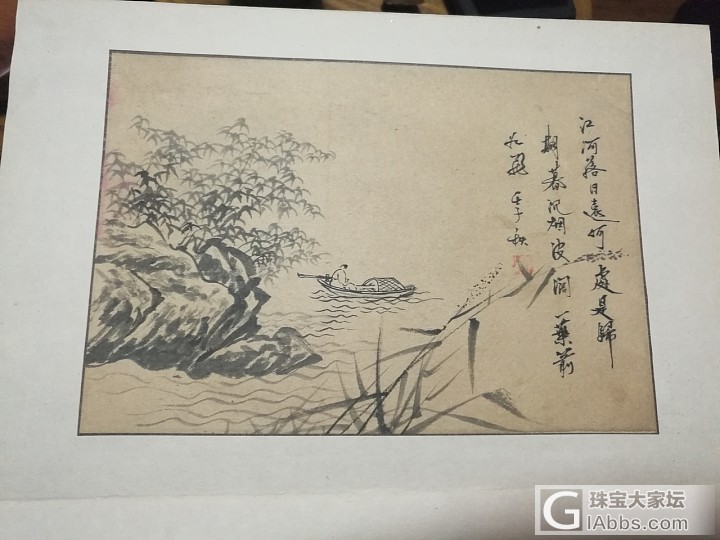 江河落日遠何處是歸
期暮沉烟波闊一葉前
壬子秋
G 珠宝大家坛
iAbbs.com